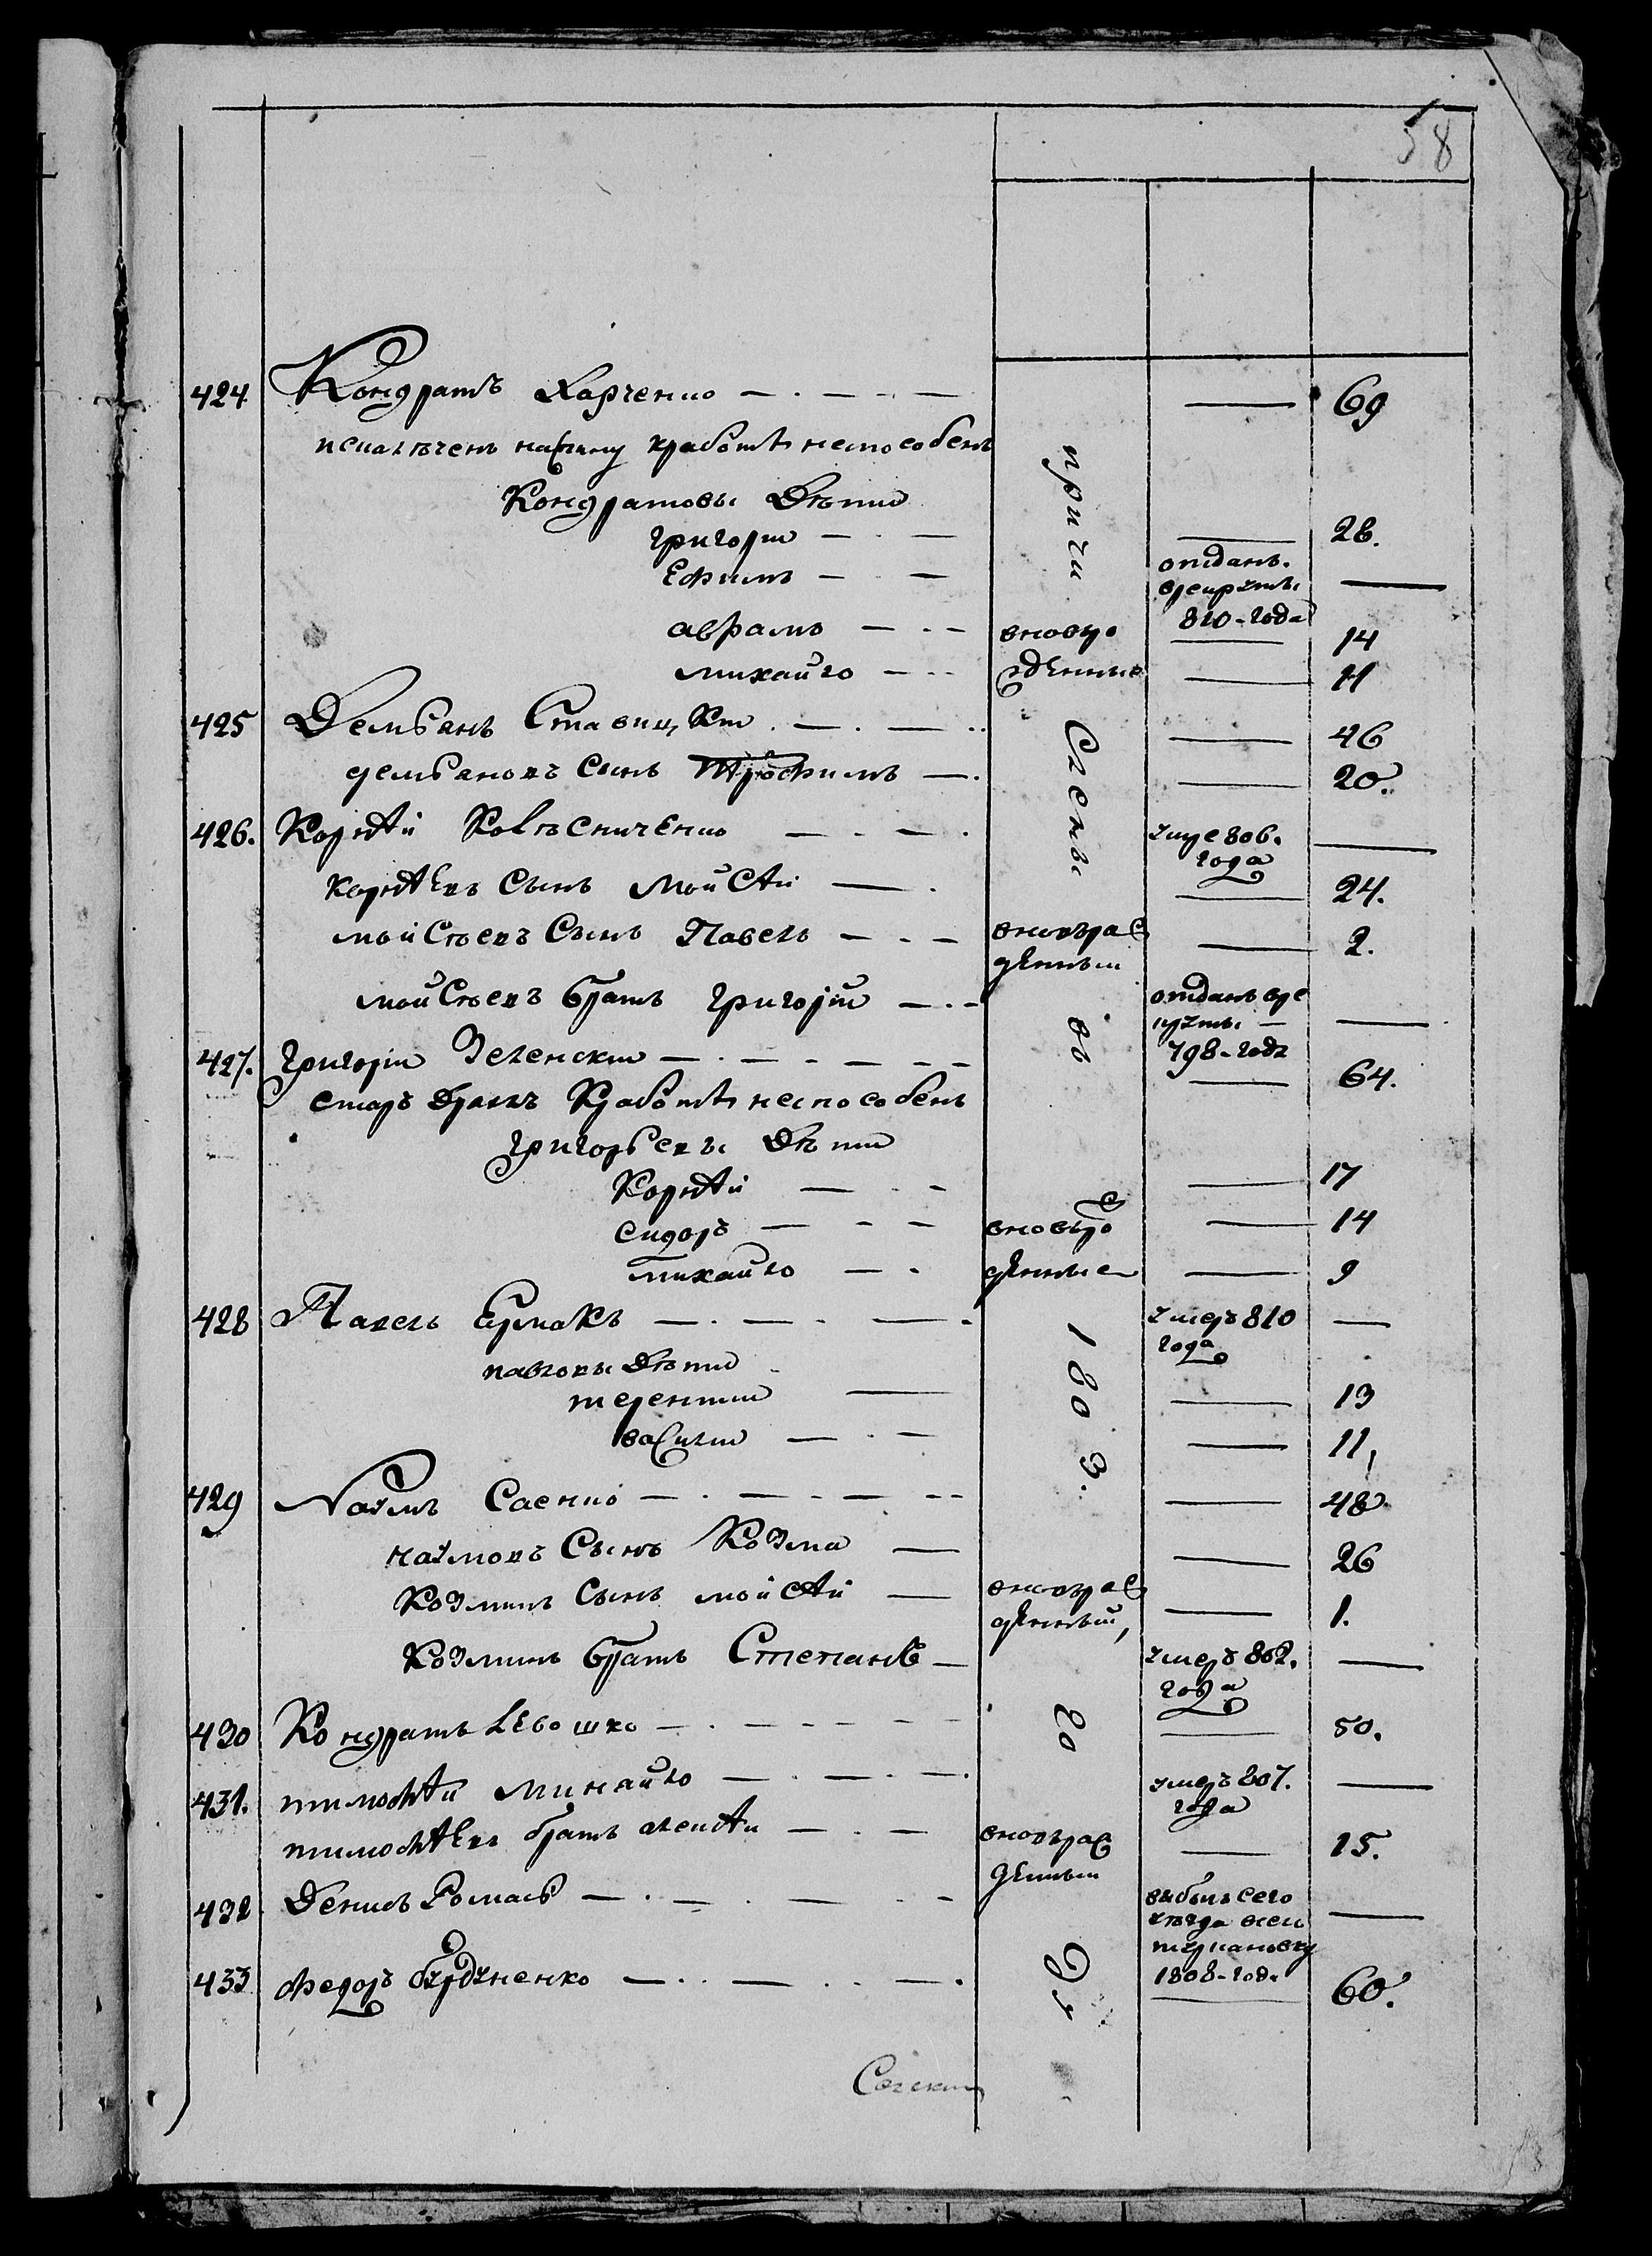 58
424 Кондратъ Харченко — . — . — 69
искалѣченъ на спину к работѣ неспособенъ
Кондратовы Дѣти
григорій — . — 28.
Ефимъ — . — отданъ. в рекруты 810-года —
аврамъ — . — вновьро 14
михайло — . . жденные 11
425 Демьянъ Ставицкій . — . — .. 46
демьяновъ Сынъ Трофимъ — . 20.
426. Корнѣй Колѣсниченко — . — . умре 806. года —
корнѣевъ Сынъ Мойсѣй — . 24.
мойсѣевъ Сынъ Павелъ — . — вноврож 2.
денный
мойсѣевъ братъ григорій — . — отданъ вре круты — 798-года —
427. григорій Зеленскій — . — . — 64.
старъ дряхлъ К работѣ неспособенъ
григорьевы Дѣти
Корнѣй — . — 17
сидоръ — . — вновьро 14
михайло — . жденные 9
428 Павелъ Ермакъ — . — . — . умеръ 810 года —
павловы Дѣти
терентій — 13
василій — . — 11,
429 Наумъ Саенко — . — . — 48
наумовъ Сынъ Козма — 26
Козминъ Сынъ мойсѣй — вноврож 1.
денный,
Козминъ братъ Степанъ — умеръ 802. года —
430 Кондратъ Левошко — . — . — 50.
431. тимофѣй Минайло — . — . — . умеръ 807. года —
тимофѣевъ братъ алексѣй — . — вноврож 15.
денный
432 Денисъ Ромасъ — . — . — выбылъ сего уѣзда всело 1808-года —
433 федоръ бурдуненко — . . — . . — . 60.
причи
слены
въ
180 3.
го